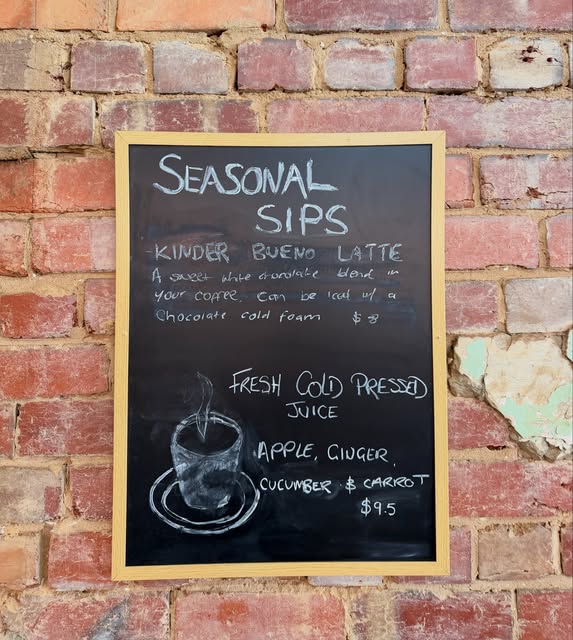 SEASONAL
SIPS
KINDER BUENO LATTE
A sweet white chocolate blend in
your coffee. Can be iced w/ a
Chocolate cold foam $8
FRESH COLD PRESSED
JUICE
APPLE, GINGER,
CUCUMBER $ CARROT
$9.5